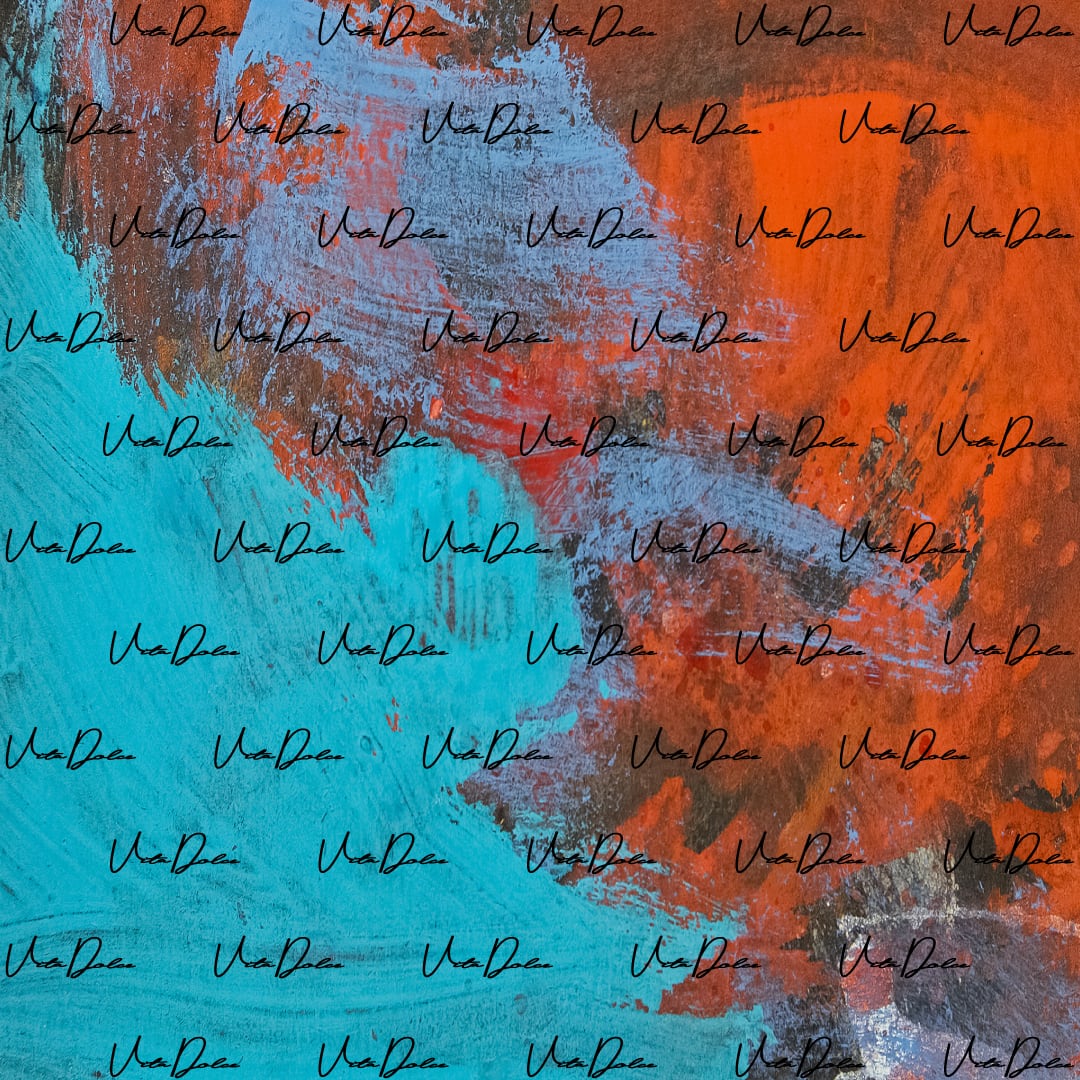 Vita Dolce Vita Dolce Vita Dolce Vita Dolce Vita Dolce
Vita Dolce Vita Dolce Vita Dolce Vita Dolce Vita Dolce
Vita Dolce Vita Dolce Vita Dolce Vita Dolce Vita Dolce
Vita Dolce Vita Dolce Vita Dolce Vita Dolce Vita Dolce
Vita Dolce Vita Dolce Vita Dolce Vita Dolce Vita Dolce
Vita Dolce Vita Dolce Vita Dolce Vita Dolce Vita Dolce
Vita Dolce Vita Dolce Vita Dolce Vita Dolce Vita Dolce
Vita Dolce Vita Dolce Vita Dolce Vita Dolce Vita Dolce
Vita Dolce Vita Dolce Vita Dolce Vita Dolce Vita Dolce
Vita Dolce Vita Dolce Vita Dolce Vita Dolce Vita Dolce
Vita Dolce Vita Dolce Vita Dolce Vita Dolce Vita Dolce